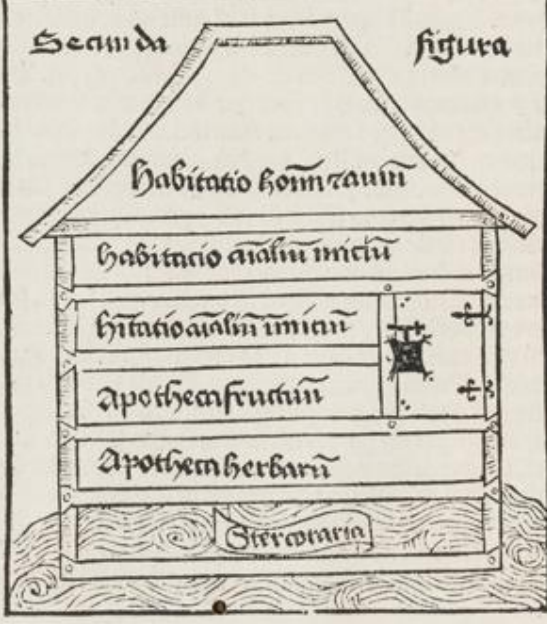 Secunda figura
habitatio hom̄ ⁊ auiū
habitacio aīaliū mitiū
hītatio aīaliū īmitiū
Apotheca fructuū
Apotheca herbarū
Stercoraria